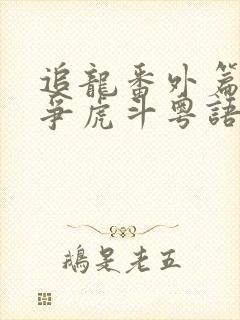 追龍番外篇
爭虎斗粵語
鵝是老五